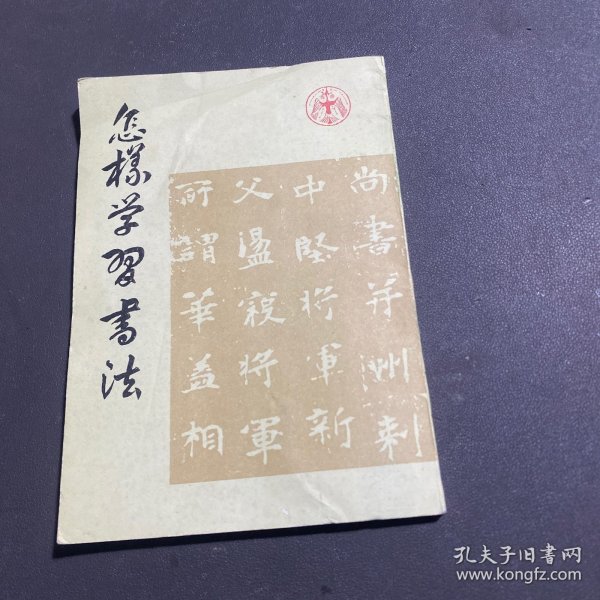 怎樣学習書法
尚書并州刺
中堅将軍新
父溫親将軍
所謂華蓋相
孔夫子旧书网
www.kongfz.com